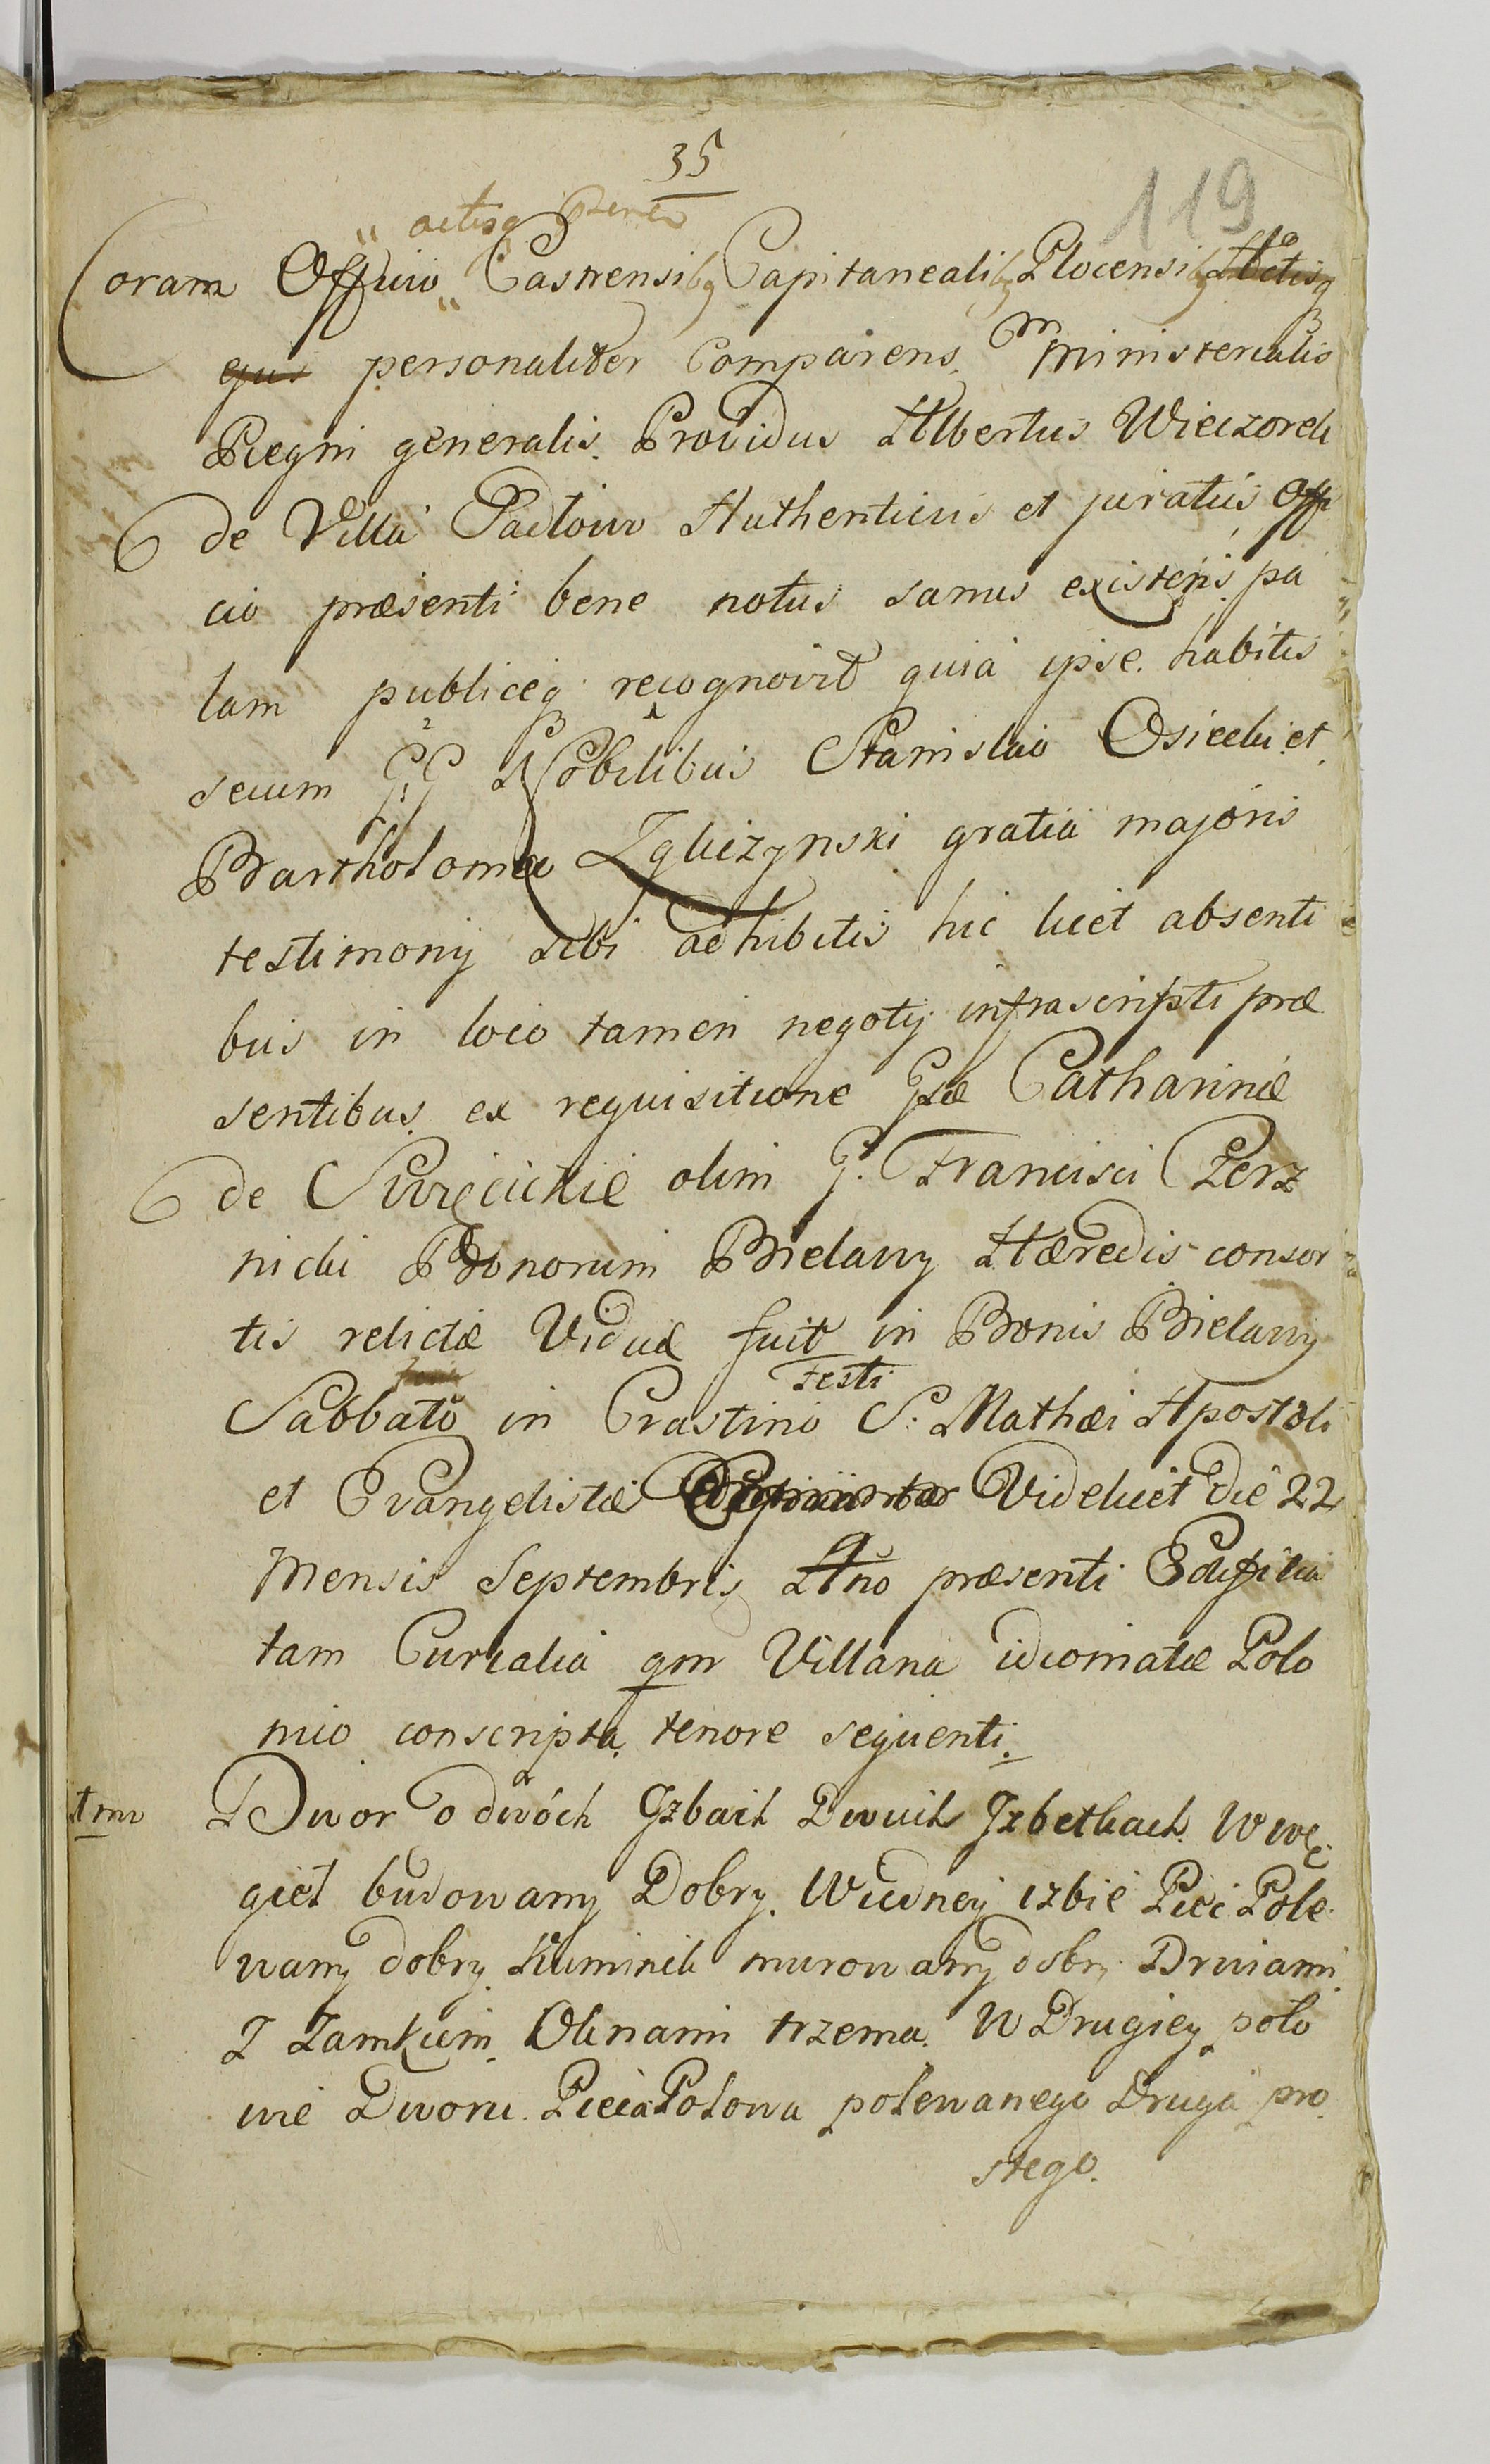 35
119
actisq
Coram Officio Castrensibq Capitanealibq Plocensibq Actisq
ejus personaliter Comparens Ministerialis
Regni generalis Providus Albertus Wieczorek
de Villa Authenticus et juratus Offi
cio præsenti bene notus sanus existens pa
lam publiceq recognovit quia ipse habitis
secum GG Nobilibus Stanislao Osiecki et
Bartholomæo Zgliczynski gratia majoris
testimonij sibi adhibitis hic licet absenti
bus in loco tamen negotij infrascripti præ
sentibus ex requisitione Gsæ Catharinæ
de olim G. Francisci Pierz
nicki Bonorum Bielawy Hæredis consor
tis relictæ Viduæ fuit in Bonis Bielawy
Sabbato in Crastino festi S. Mathæi Apostoli
et Evangelistæ Videlicet die 22
Mensis Septembris Ano præsenti Ædificia
tam Curialia qm Villana idiomate Polo
nico conscripta tenore sequenti
Dwor o dwóch Jzbach Dwuch Jzbetkach W wę
gieł budowany Dobry. W iedney izbie Piec Pole
wany dobry Kuminek murowany dobry Drwiami
Z Zamkiem Oknami trzema. W Drugiey poło
wie Dworu. Pieca Połowa polewanego Druga pro
stego.